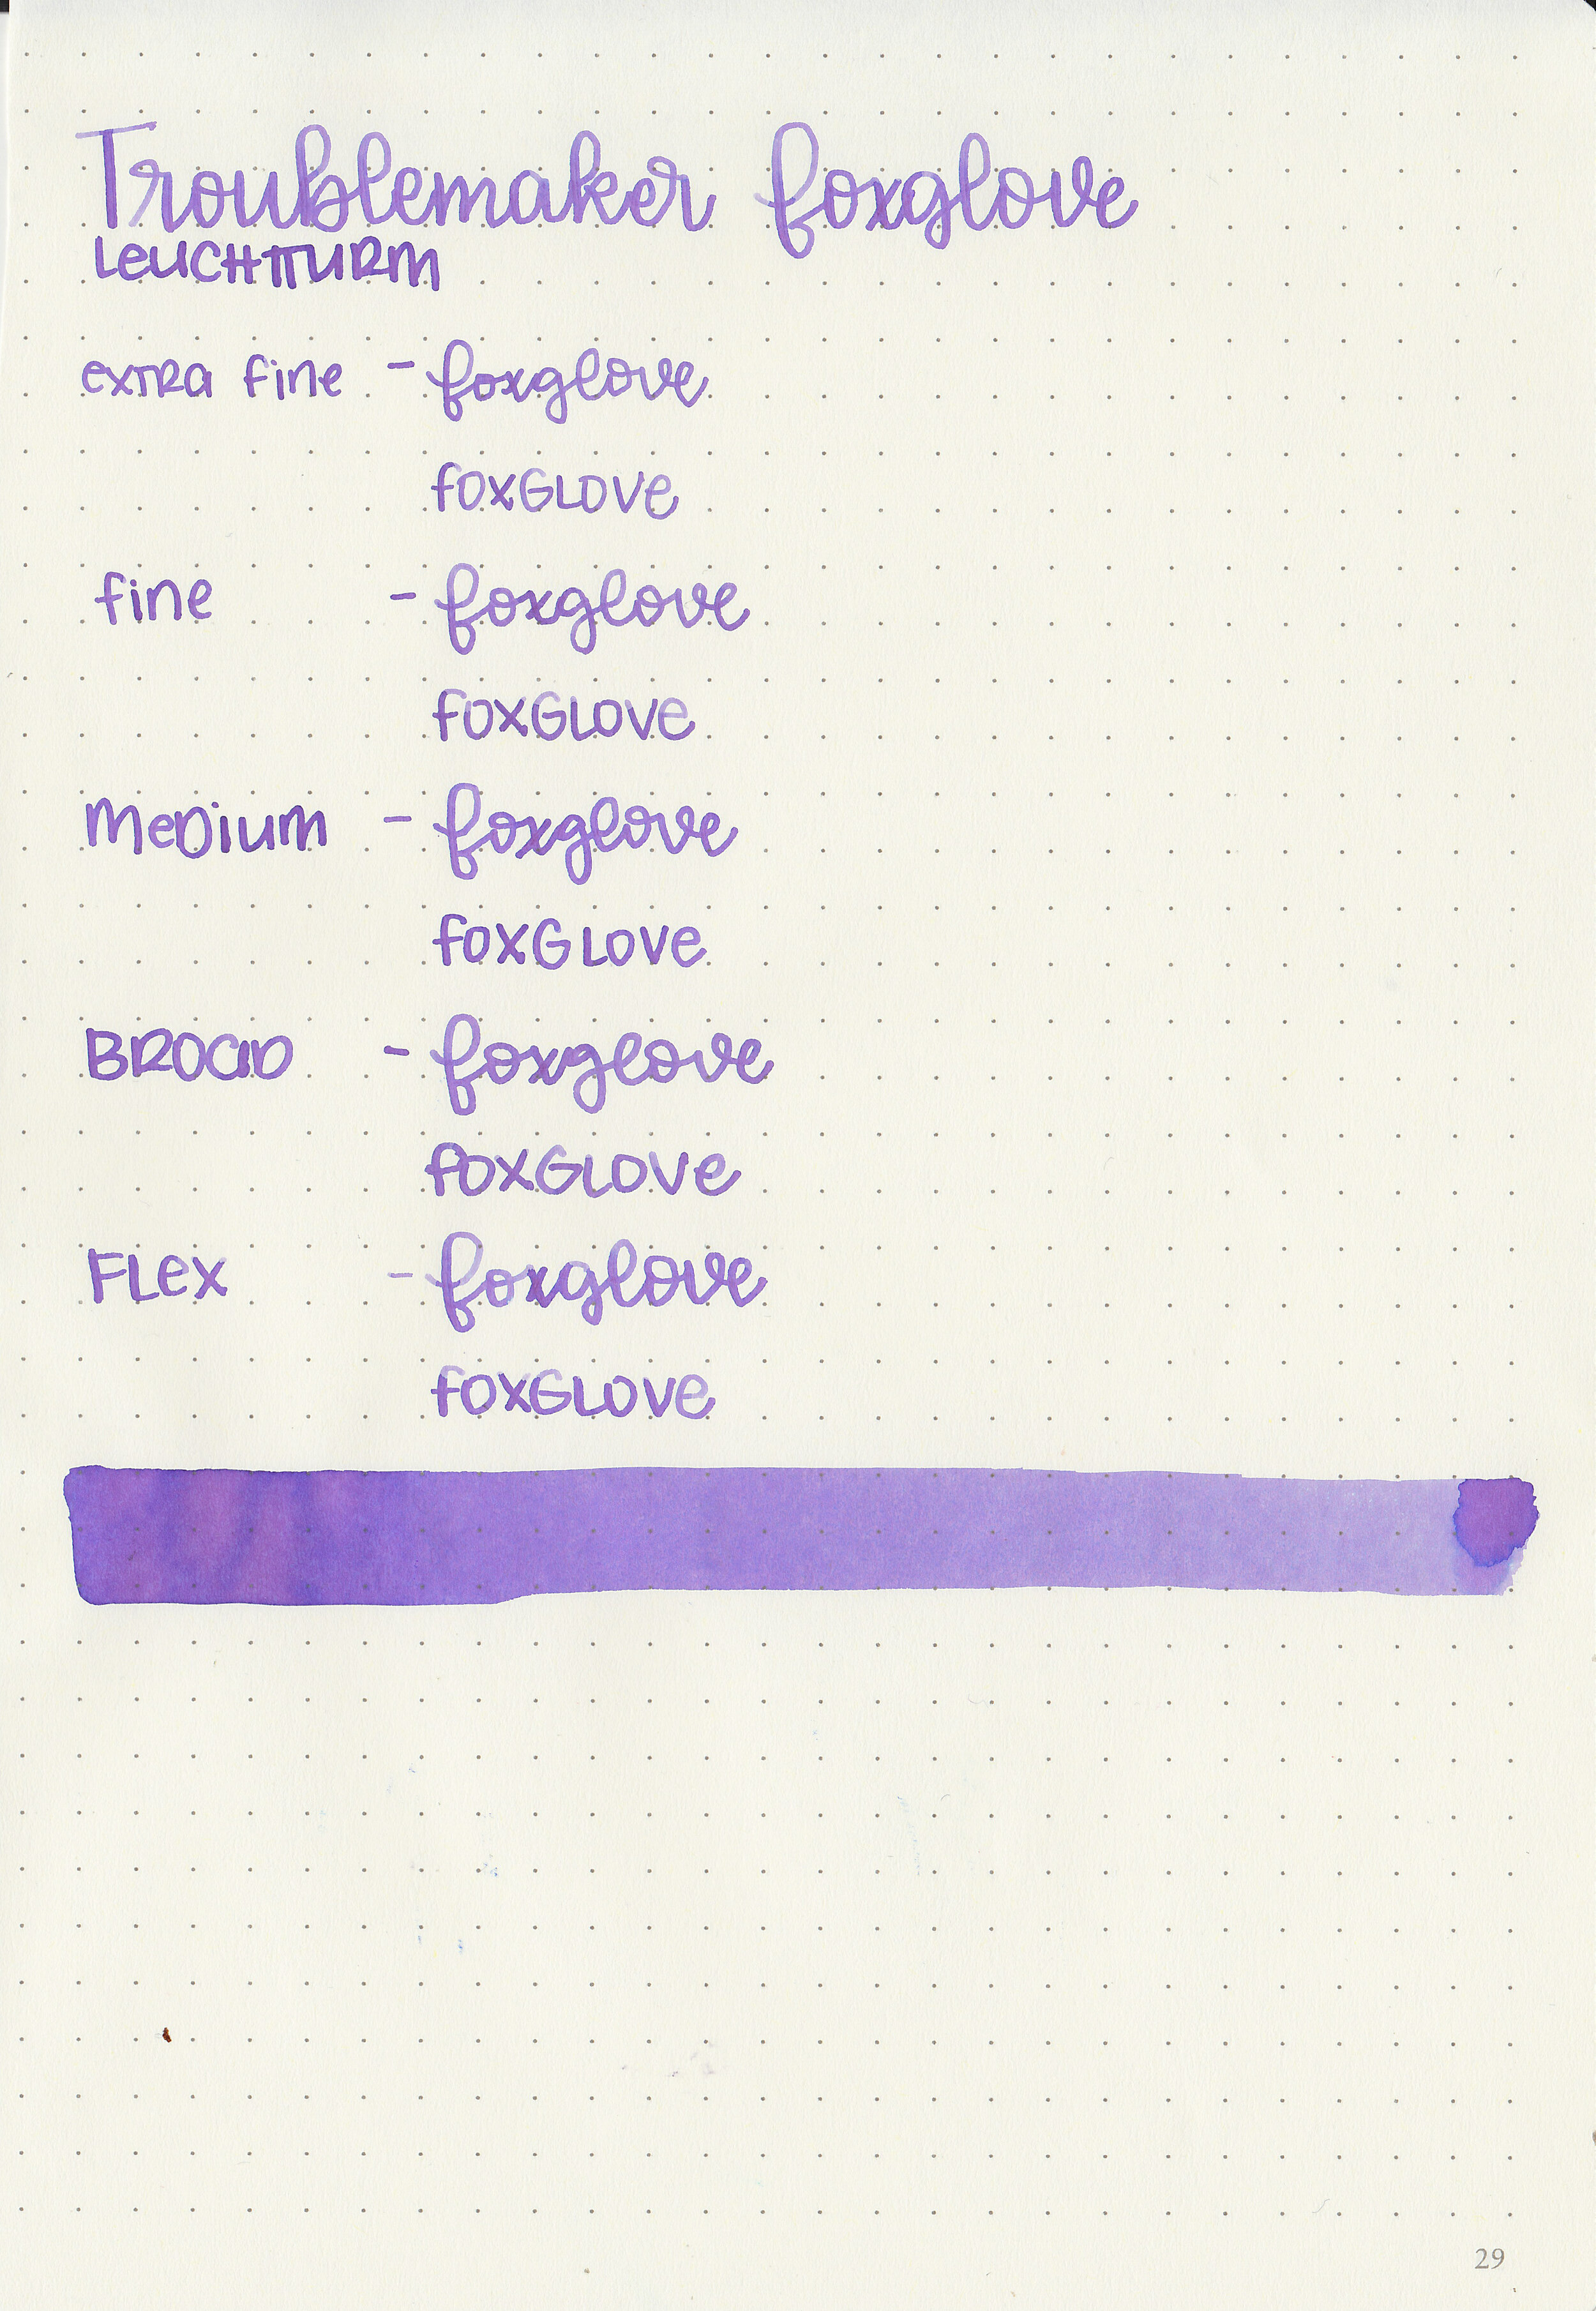 Troublemaker foxglove
LEUCHTTURM
extra fine - foxglove
FOXGLOVE
fine - foxglove
FOXGLOVE
MEDIUM - foxglove
FOXGLOVE
BROAD - foxglove
FOXGLOVE
FLEX - foxglove
FOXGLOVE
29